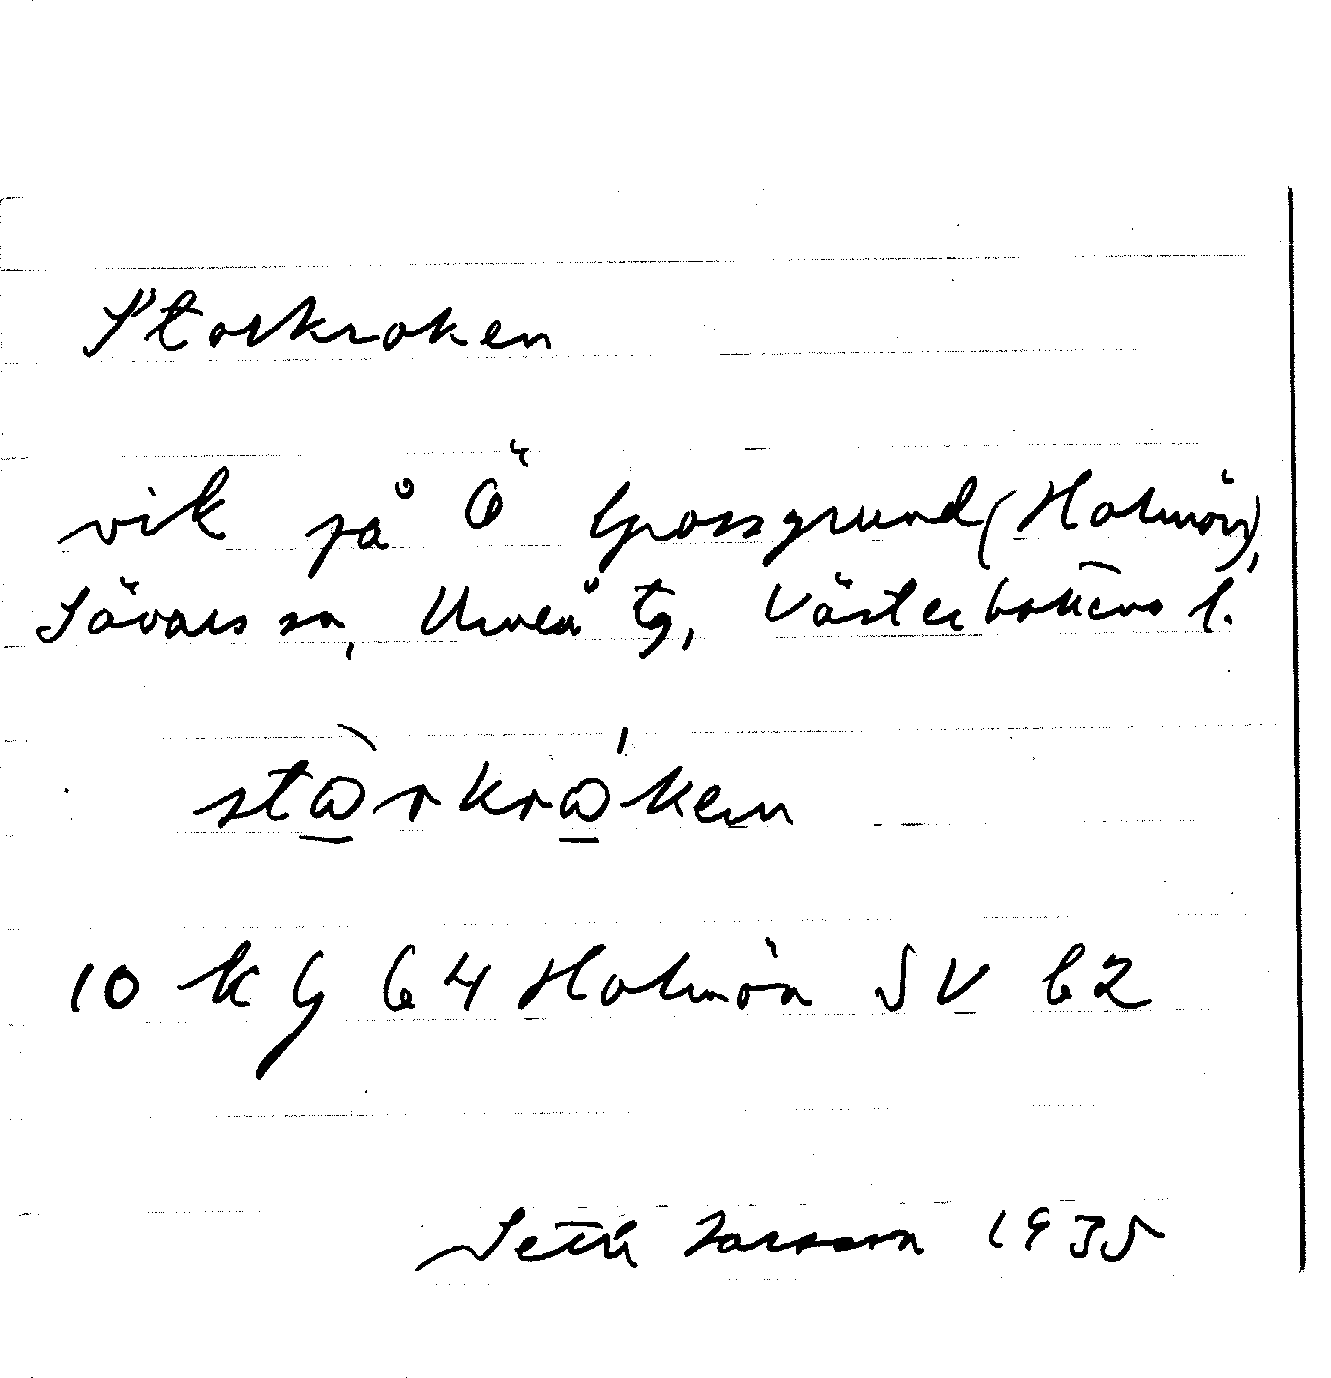 Storkroken
vik på Ö Grossgrund (Holmön),
Sävars sn, Umeå tg, Västerbottens l.
stà̲rkrá̲ken
10 k G 64 Holmön SV 62
Seth Larsson 1935